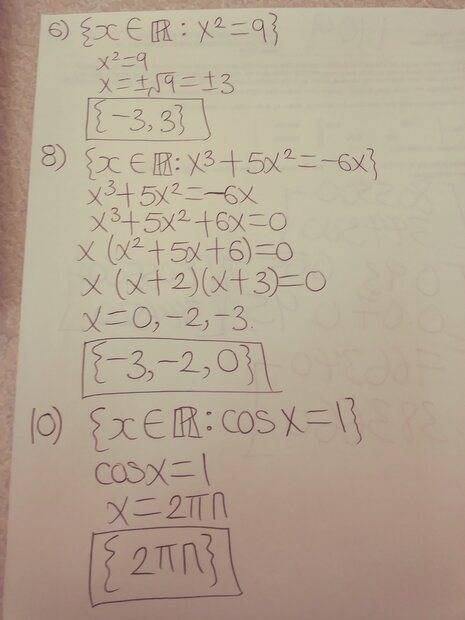 6) {x ∈ ℝ : x² = 9}
x² = 9
x = ±√9 = ±3
{-3, 3}
8) {x ∈ ℝ : x³ + 5x² = -6x}
x³ + 5x² = -6x
x³ + 5x² + 6x = 0
x (x² + 5x + 6) = 0
x (x + 2)(x + 3) = 0
x = 0, -2, -3.
{-3, -2, 0}
10) {x ∈ ℝ : cos x = 1}
cos x = 1
x = 2πn
{2πn}